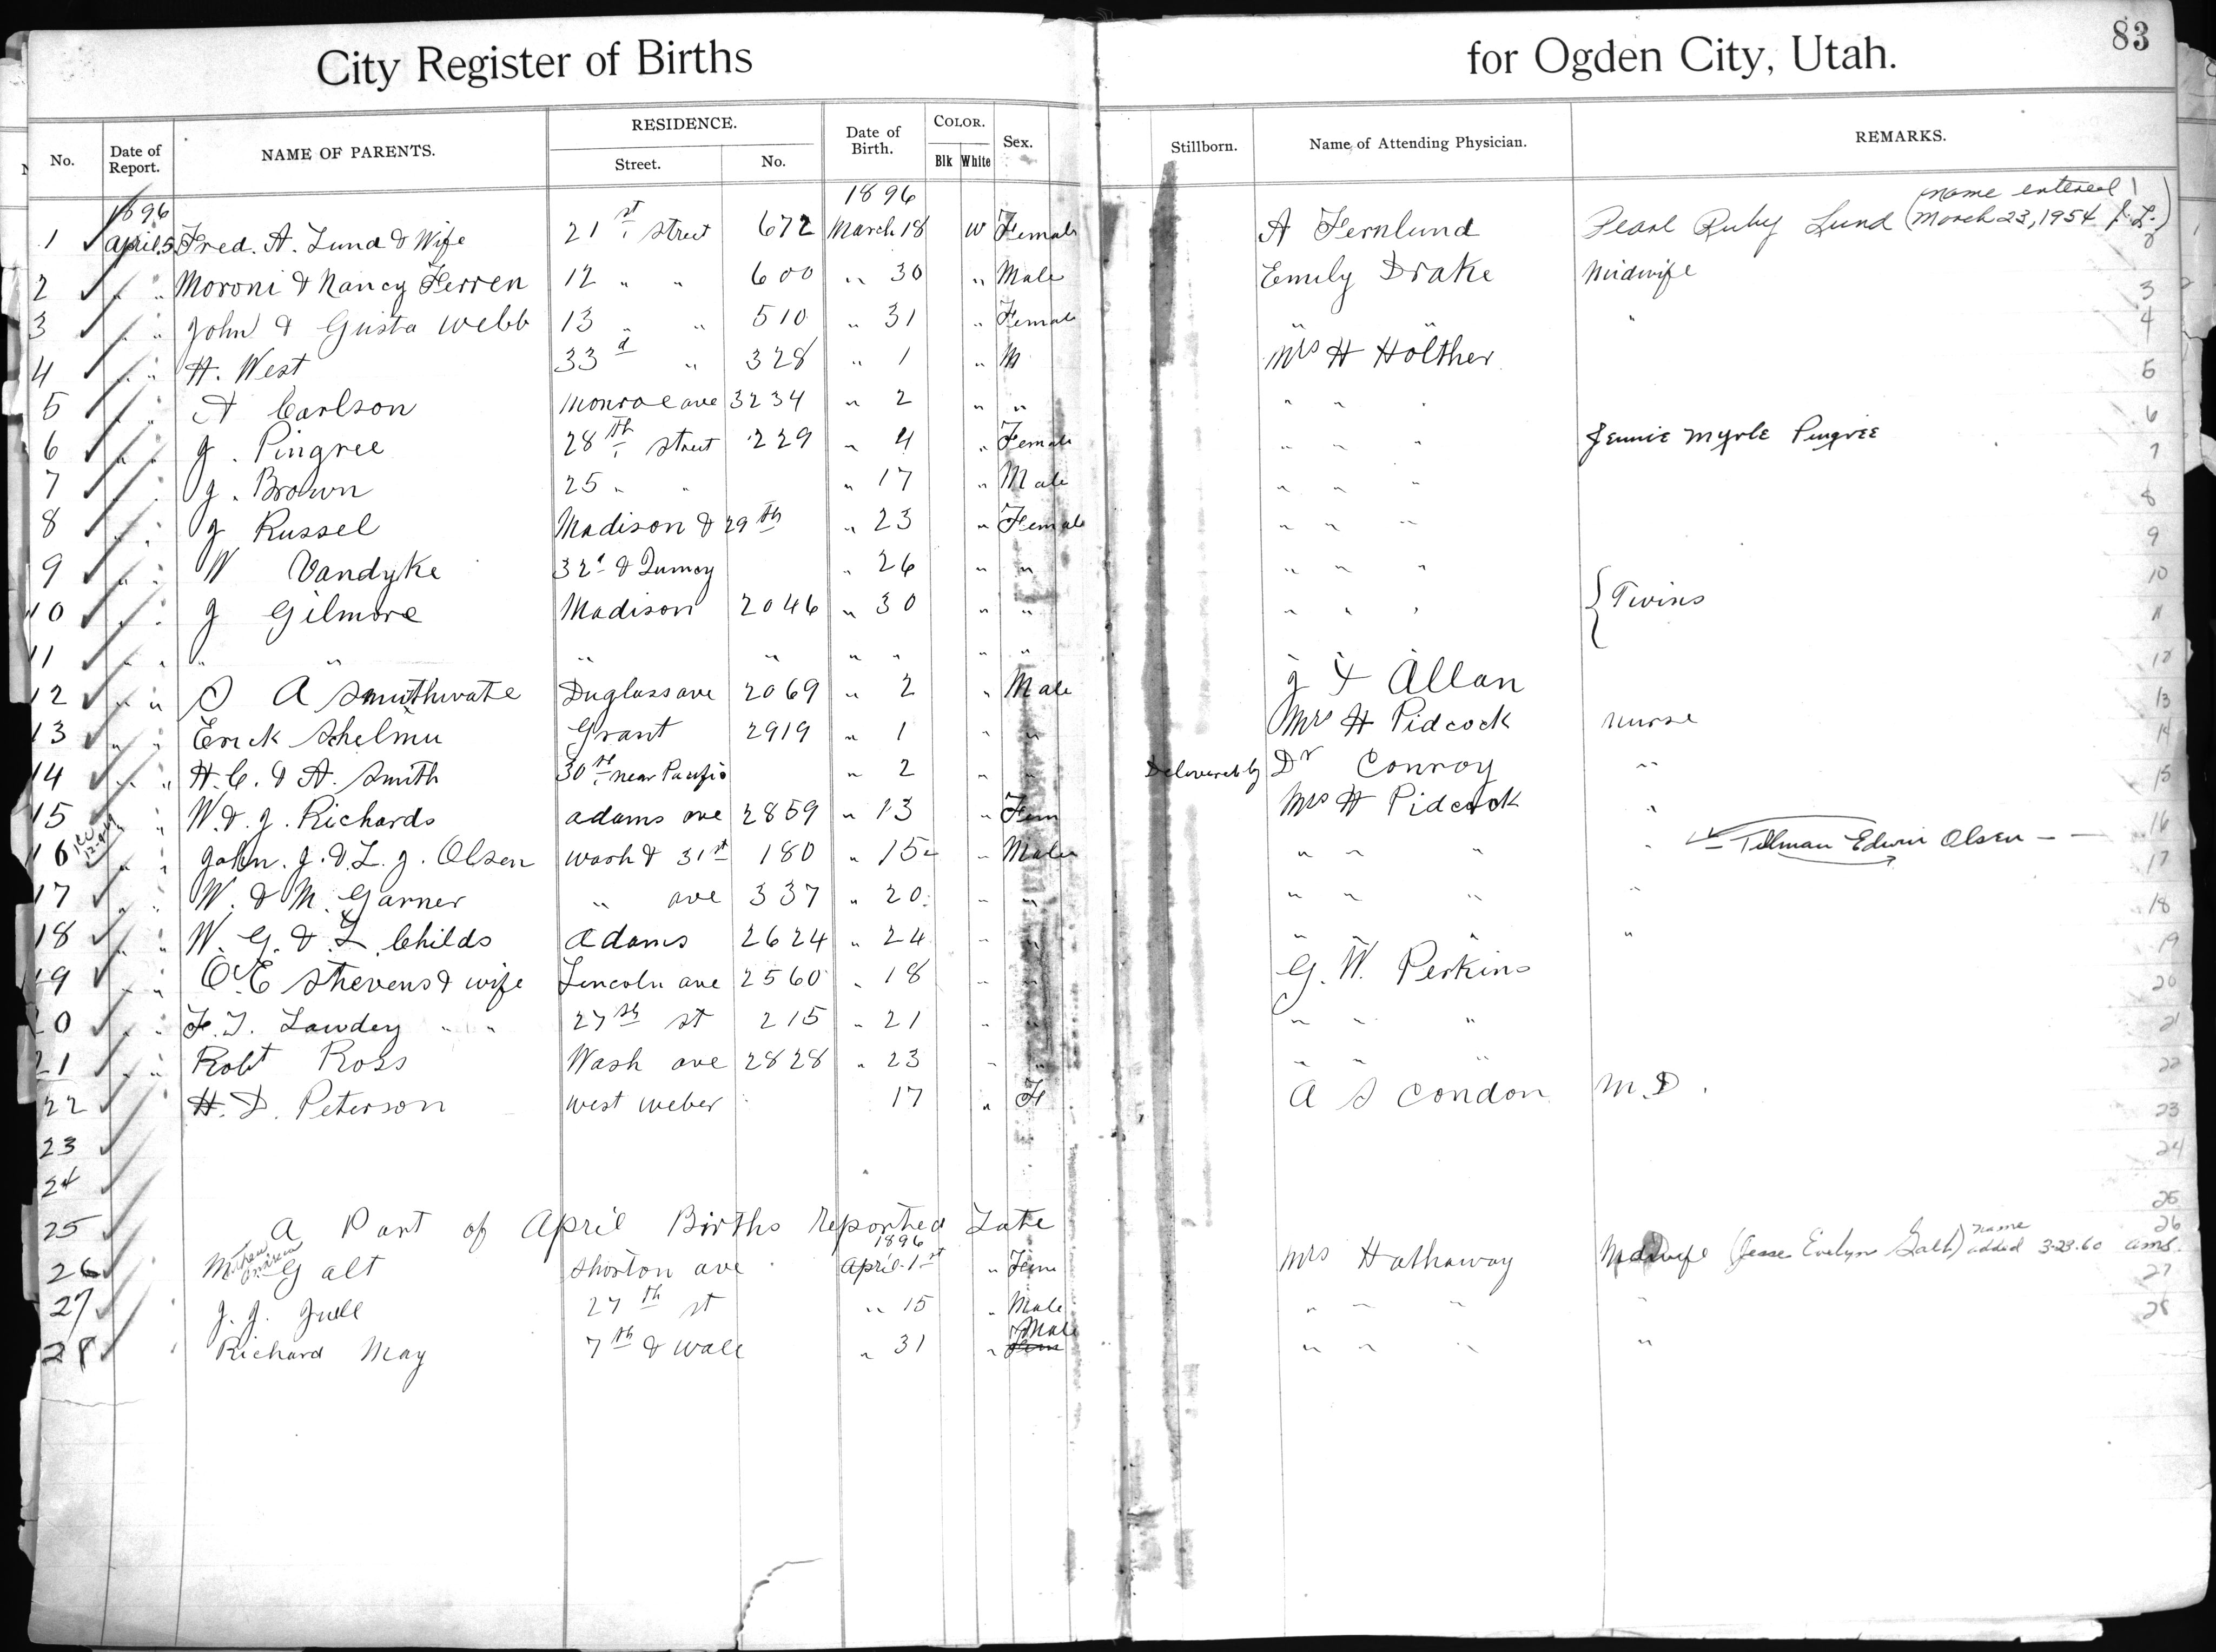 City Register of Births for Ogden City, Utah. 83
No. Date of Report. NAME OF PARENTS. RESIDENCE. Street. No. Date of Birth. COLOR. Blk White Sex. Stillborn. Name of Attending Physician. REMARKS.
1896 1896 name entered
1 April 5 Fred. A. Lund & Wife 21st street 672 March 18 W Female A Fernlund Pearl Ruby Lund (March 23, 1954
2 " " Moroni & Nancy Ferren 12 " " 600 " 30 " Male Emily Drake Midwife
3 " " John & Gusta Webb 13 " " 510 " 31 " Female " " "
4 " " H. West 33d " 328 " 1 " M Mrs H Holther
5 " " A Carlson Monroe ave 3234 " 2 " " " " "
6 " " J. Pingree 28th street 229 " 4 " Female " " " Jennie Myrle Pingree
7 " " J. Brown 25 " " " 17 " Male " " "
8 " " J Russel Madison & 29th " 23 " Female " " "
9 " " W Vandyke 32d & " 26 " " " " "
10 " " J Gilmore Madison 2046 " 30 " " " " " { Twins
11 " " " " " " " " " " " " "
12 " " S A Smuthwate Duglass ave 2069 " 2 " Male J X Allan
13 " " Erick Shelmu Grant 2919 " 1 " " Mrs H Pidcock nurse
14 " " H. C. & A. Smith 30th near Pacific " 2 " " Delivered by Dr Conroy "
15 " " W. & J. Richards adams ave 2859 " 13 " Fem Mrs H Pidcock "
16 " " John. J. & L. J. Olsen Wash & 31st 180 " 15 " Male " " " " Tillman Edwin Olsen
17 " " W. & M. Garner " ave 337 " 20 " " " " " "
18 " " W. G. & L Childs Adams 2624 " 24 " " " " " "
19 " " O E Stevens & wife Lincoln ave 2560 " 18 " " G. W. Perkins
20 " " F. T. Lowdey " " 27th st 215 " 21 " " " " "
21 " " Robt Ross Wash ave 2828 " 23 " " " " "
22 H. D. Peterson west weber 17 " F A S Condon M.D.
23
24
25 A Part of April Births reported Late
1896 name
26 Galt Shorton ave April 1st " Fem Mrs Hathaway Midwife (Jesse Evelyn Galt) added 3-23-60 ams.
27 J. J. Jull 27th st " 15 " Male " " " "
28 Richard May 7th & Wall " 31 " Fem Male " " " "